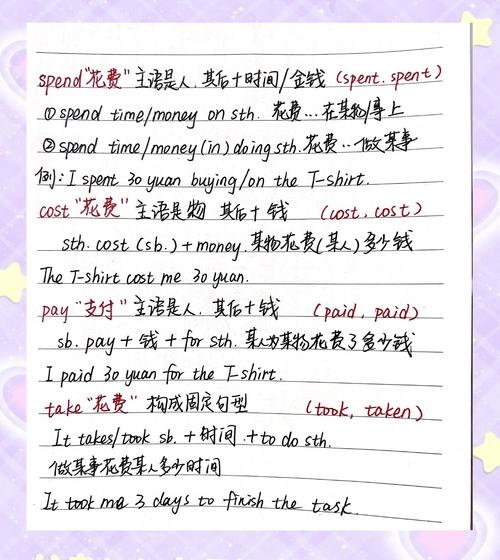 spend"花费"主语是人.其后+时间/金钱 (spent.spent)
①spend time/money on sth. 花费...在某物/事上
②spend time/money(in)doing sth.花费...做某事
例:I spent 30 yuan buying/on the T-shirt.
cost "花费" 主语是物 其后+钱 (cost, cost)
sth. cost (sb.)+money.某物花费(某人)多少钱
The T-shirt cost me 30 yuan.
pay "支付" 主语是人.其后+钱 (paid, paid)
sb. pay + 钱 + for sth. 某人为某物花费了多少钱
I paid 30 yuan for the T-shirt.
take "花费" 构成固定句型 (took, taken)
It takes/took sb. +时间 .+to do sth.
做某事花费某人多少时间
It took me 3 days to finish the task.